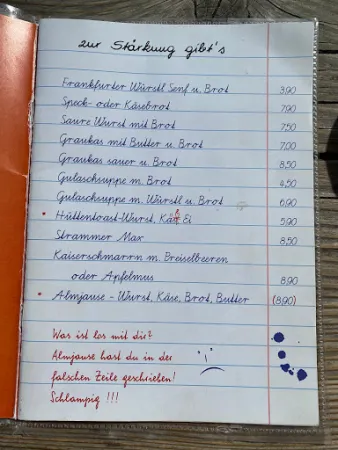 zur Stärkung gibt's
Frankfurter Würstl Senf u. Brot 3,90
Speck- oder Käsebrot 7,90
Saure Wurst mit Brot 7,50
Graukas mit Butter u. Brot 7,00
Graukas sauer u. Brot 8,50
Gulaschsuppe m. Brot 4,50
Gulaschsuppe m. Würstl u. Brot 6,90
• Hüttentoast-Wurst, Käse, Ei 5,90
Strammer Max 8,50
Kaiserschmarrn m. Preiselbeeren
oder Apfelmus 8,90
• Almjause - Wurst, Käse, Brot, Butter (8,90)
Was ist los mit dir?
Almjause hast du in der
falschen Zeile geschrieben!
Schlampig !!!